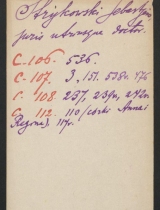 Strykowski Sebastyan
juris utriusque doctor.
C. 106. 536.
C. 107. 3, 151. 538v. 576
C. 108. 237, 237v, 242v
C. 112. 110 (córki Anna i
Regina), 117v.